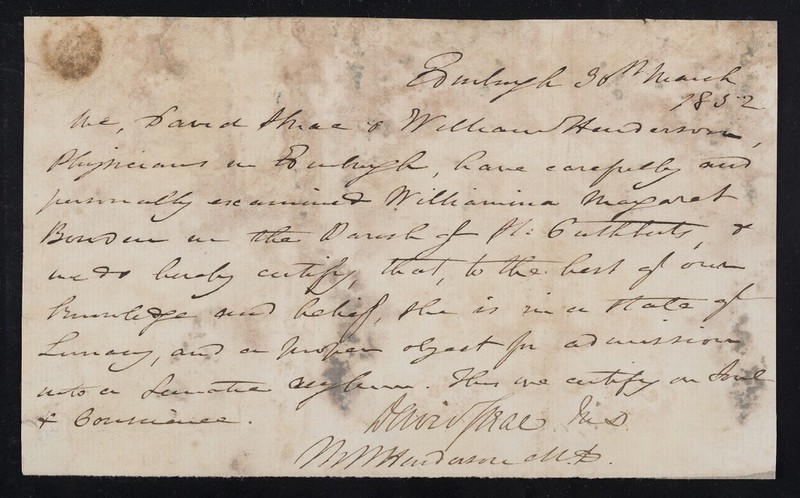 Edinburgh 30th March
1852
We, David Skae & William Henderson,
Physicians in Edinburgh, have carefully and
personally examined Williamina Magaret
Bowden in the Parish of St. Cuthberts, &
we do hereby certify, that, to the best of our
knowledge and belief, she is in a state of
Lunacy, and a proper object for admission
into a Lunatic Asylum. This we certify on Soul
& Conscience.
David Skae M.D.
Wm Henderson M.D.